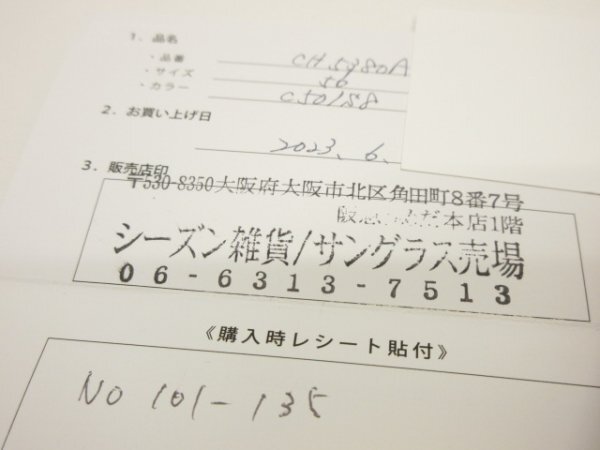 1. 品名
・品番 CH5480A
・サイズ 56
・カラー C501S8
2. お買い上げ日
2023. 6.
3. 販売店印
〒530-8350大阪府大阪市北区角田町8番7号
阪急うめだ本店1階
シーズン雑貨/サングラス売場
06-6313-7513
《購入時レシート貼付》
NO 101-135